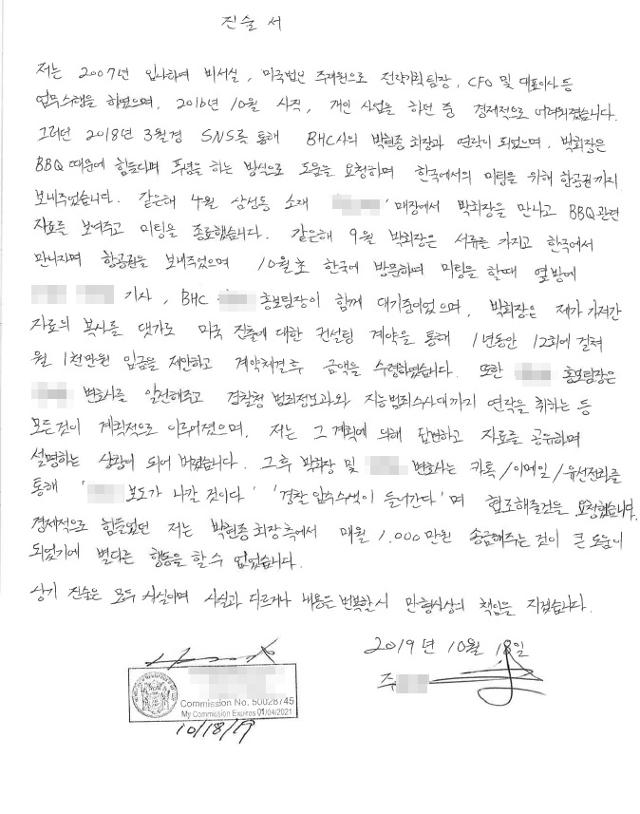 진술서
저는 2007년 입사하여 비서실, 미국법인 주재원으로 전략기획팀장, CFO 및 대표이사 등
업무수행을 하였으며, 2016년 10월 사직, 개인 사업을 하던 중 경제적으로 어려워졌습니다.
그러던 2018년 3월경 SNS를 통해 BHC사의 박현종 회장과 연락이 되었으며, 박회장은
BBQ 때문에 힘들다며 푸념을 하는 방식으로 도움을 요청하며 한국에서의 미팅을 위해 항공권까지
보내주었습니다. 같은해 4월 삼성동 소재 ' 매장에서 박회장을 만나고 BBQ 관련
자료를 보여주고 미팅을 종료했습니다. 같은해 9월 박회장은 서류를 가지고 한국에서
만나자며 항공권을 보내주었으며 10월초 한국에 방문하여 미팅을 할때 옆방에
기사, BHC 홍보팀장이 함께 대기중이었으며, 박회장은 제가 가져간
자료의 복사를 댓가로 미국 진출에 대한 컨설팅 계약을 통해 1년동안 12회에 걸쳐
월 1천만원 입금을 제안하고 계약체결후 금액을 수령하였습니다. 또한 홍보팀장은
변호사를 알선해주고 경찰청 범죄정보과와 지능범죄수사대까지 연락을 취하는 등
모든것이 계획적으로 이루어졌으며, 저는 그 계획에 의해 답변하고 자료를 공유하며
설명하는 상황이 되어 버렸습니다. 그후 박회장 및 변호사는 카톡/이메일/유선전화를
통해 ' 보도가 나갈 것이다' '경찰 압수수색이 들어간다' 며 협조해줄것을 요청했습니다.
경제적으로 힘들었던 저는 박현종 회장측에서 매월 1,000만원 송금해주는 것이 큰 도움이
되었기에 별다른 행동을 할 수 없었습니다.
상기 진술은 모두 사실이며 사실과 다르거나 내용을 번복할시 민형사상의 책임을 지겠습니다.
2019년 10월 18일
주
Commission No. 50028745
My Commission Expires 01/04/2021
10/18/19